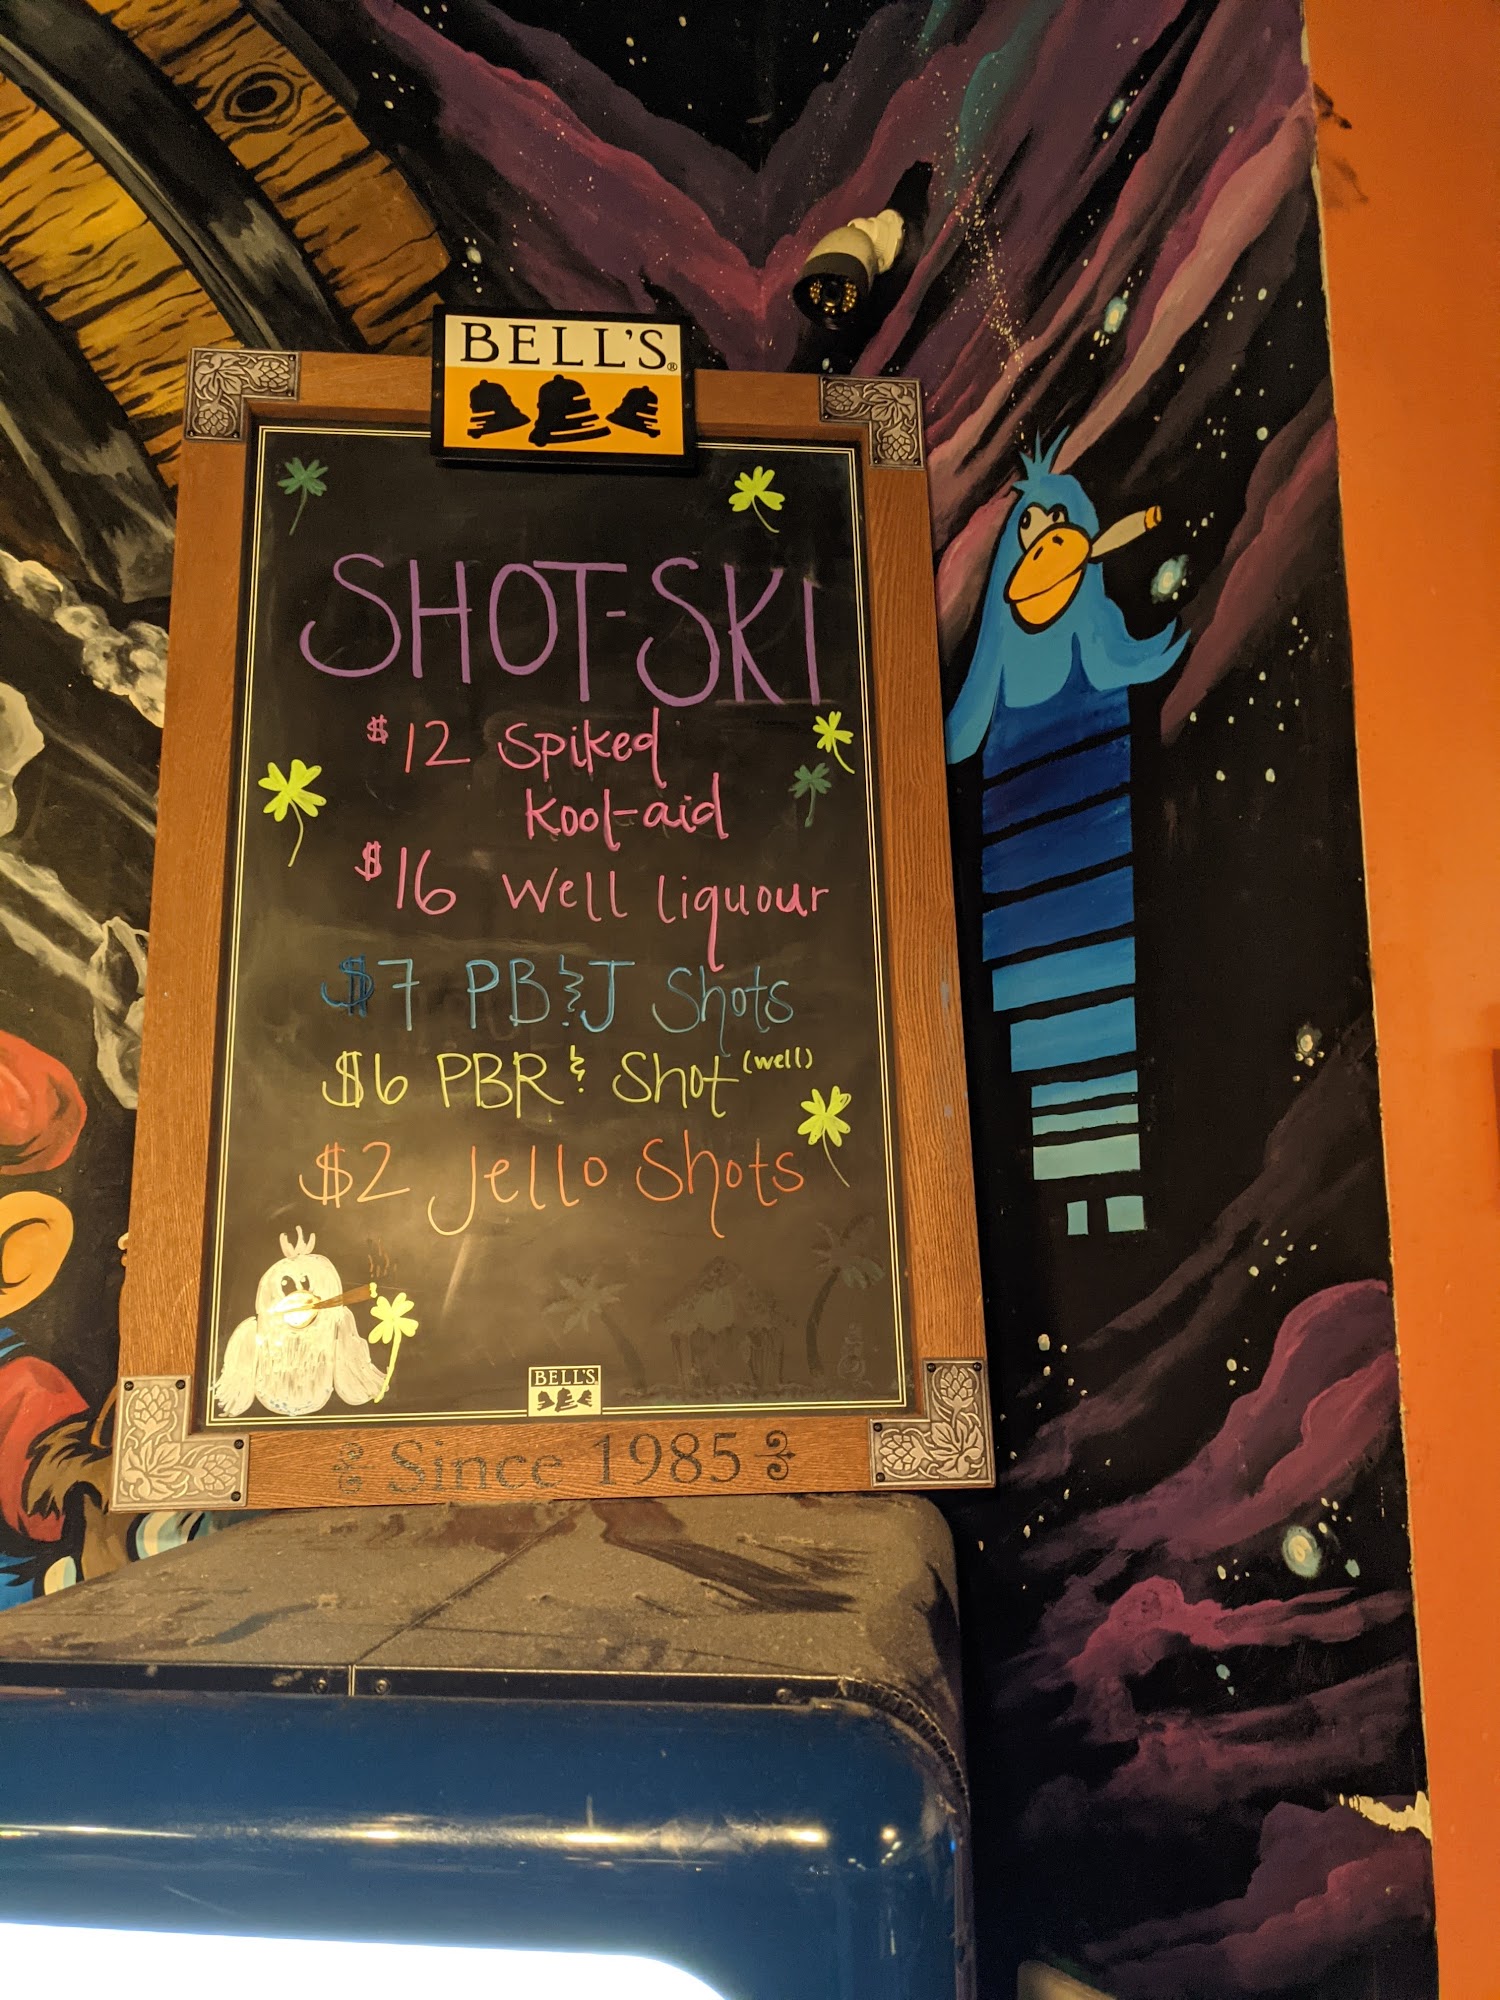 BELL'S®
SHOT-SKI
$12 Spiked
Kool-aid
$16 Well liquour
$7 PB&J Shots
$6 PBR & Shot (well)
$2 Jello Shots
BELL'S
Since 1985